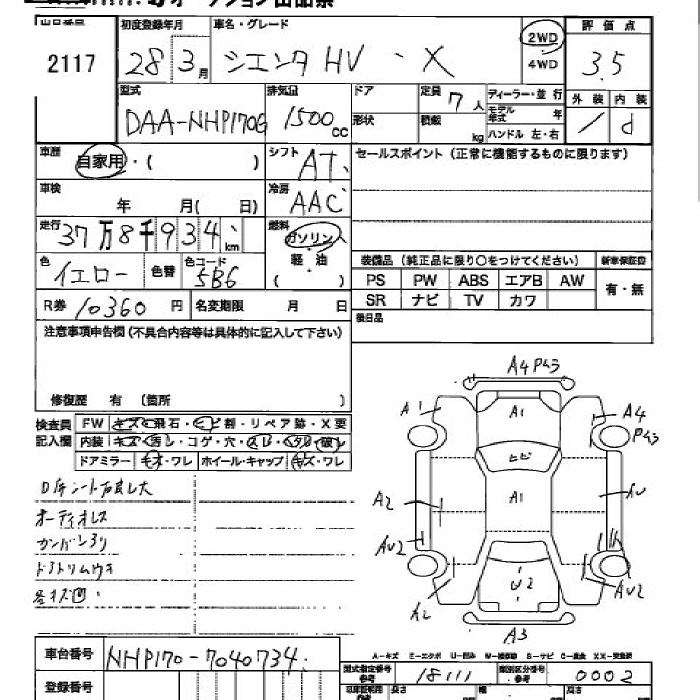 オークション出品票
出品番号 2117
初度登録年月 28 3月
車名・グレード シエンタ HV ・ X
2WD
4WD
評価点 3.5
型式 DAA-NHP170G
排気量 1500cc
ドア
形状
定員 7人
積載 kg
ディーラー・並行
モデル年式 年
ハンドル 左・右
外装
内装 d
車歴 自家用・( )
シフト AT
セールスポイント (正常に機能するものに限ります)
車検 年 月( 日)
冷房 AAC
走行 37万8千934km
燃料 ガソリン
軽・油
( )
色 イエロー
色替
色コード 5B6
装備品 (純正品に限り○をつけてください)
新車保証書
PS PW ABS エアB AW
SR ナビ TV カワ
有・無
R券 10360円
名変期限 月 日
後日品
注意事項申告欄 (不具合内容等は具体的に記入して下さい)
修復歴 有 (箇所 )
検査員記入欄
FW キズ・飛石・ヒビ割・リペア跡・X要
内装 キズ・汚レ・コゲ・穴・スレ・ヘタレ・破レ
ドアミラー キズ・ワレ
ホイール・キャップ キズ・ワレ
オーディオレス
A4 P43
A1
A1
A4
P43
ヒビ
A2
A1
AU
AU2
U2
AU2
A2
A3
A-キズ E-エクボ U-凹み W-補修跡 S-サビ C-腐食 XX-交換済
車台番号 NHP170-7040734
型式指定番号 参考 18111
類別区分番号 参考 0002
登録番号
長さ
幅
高さ